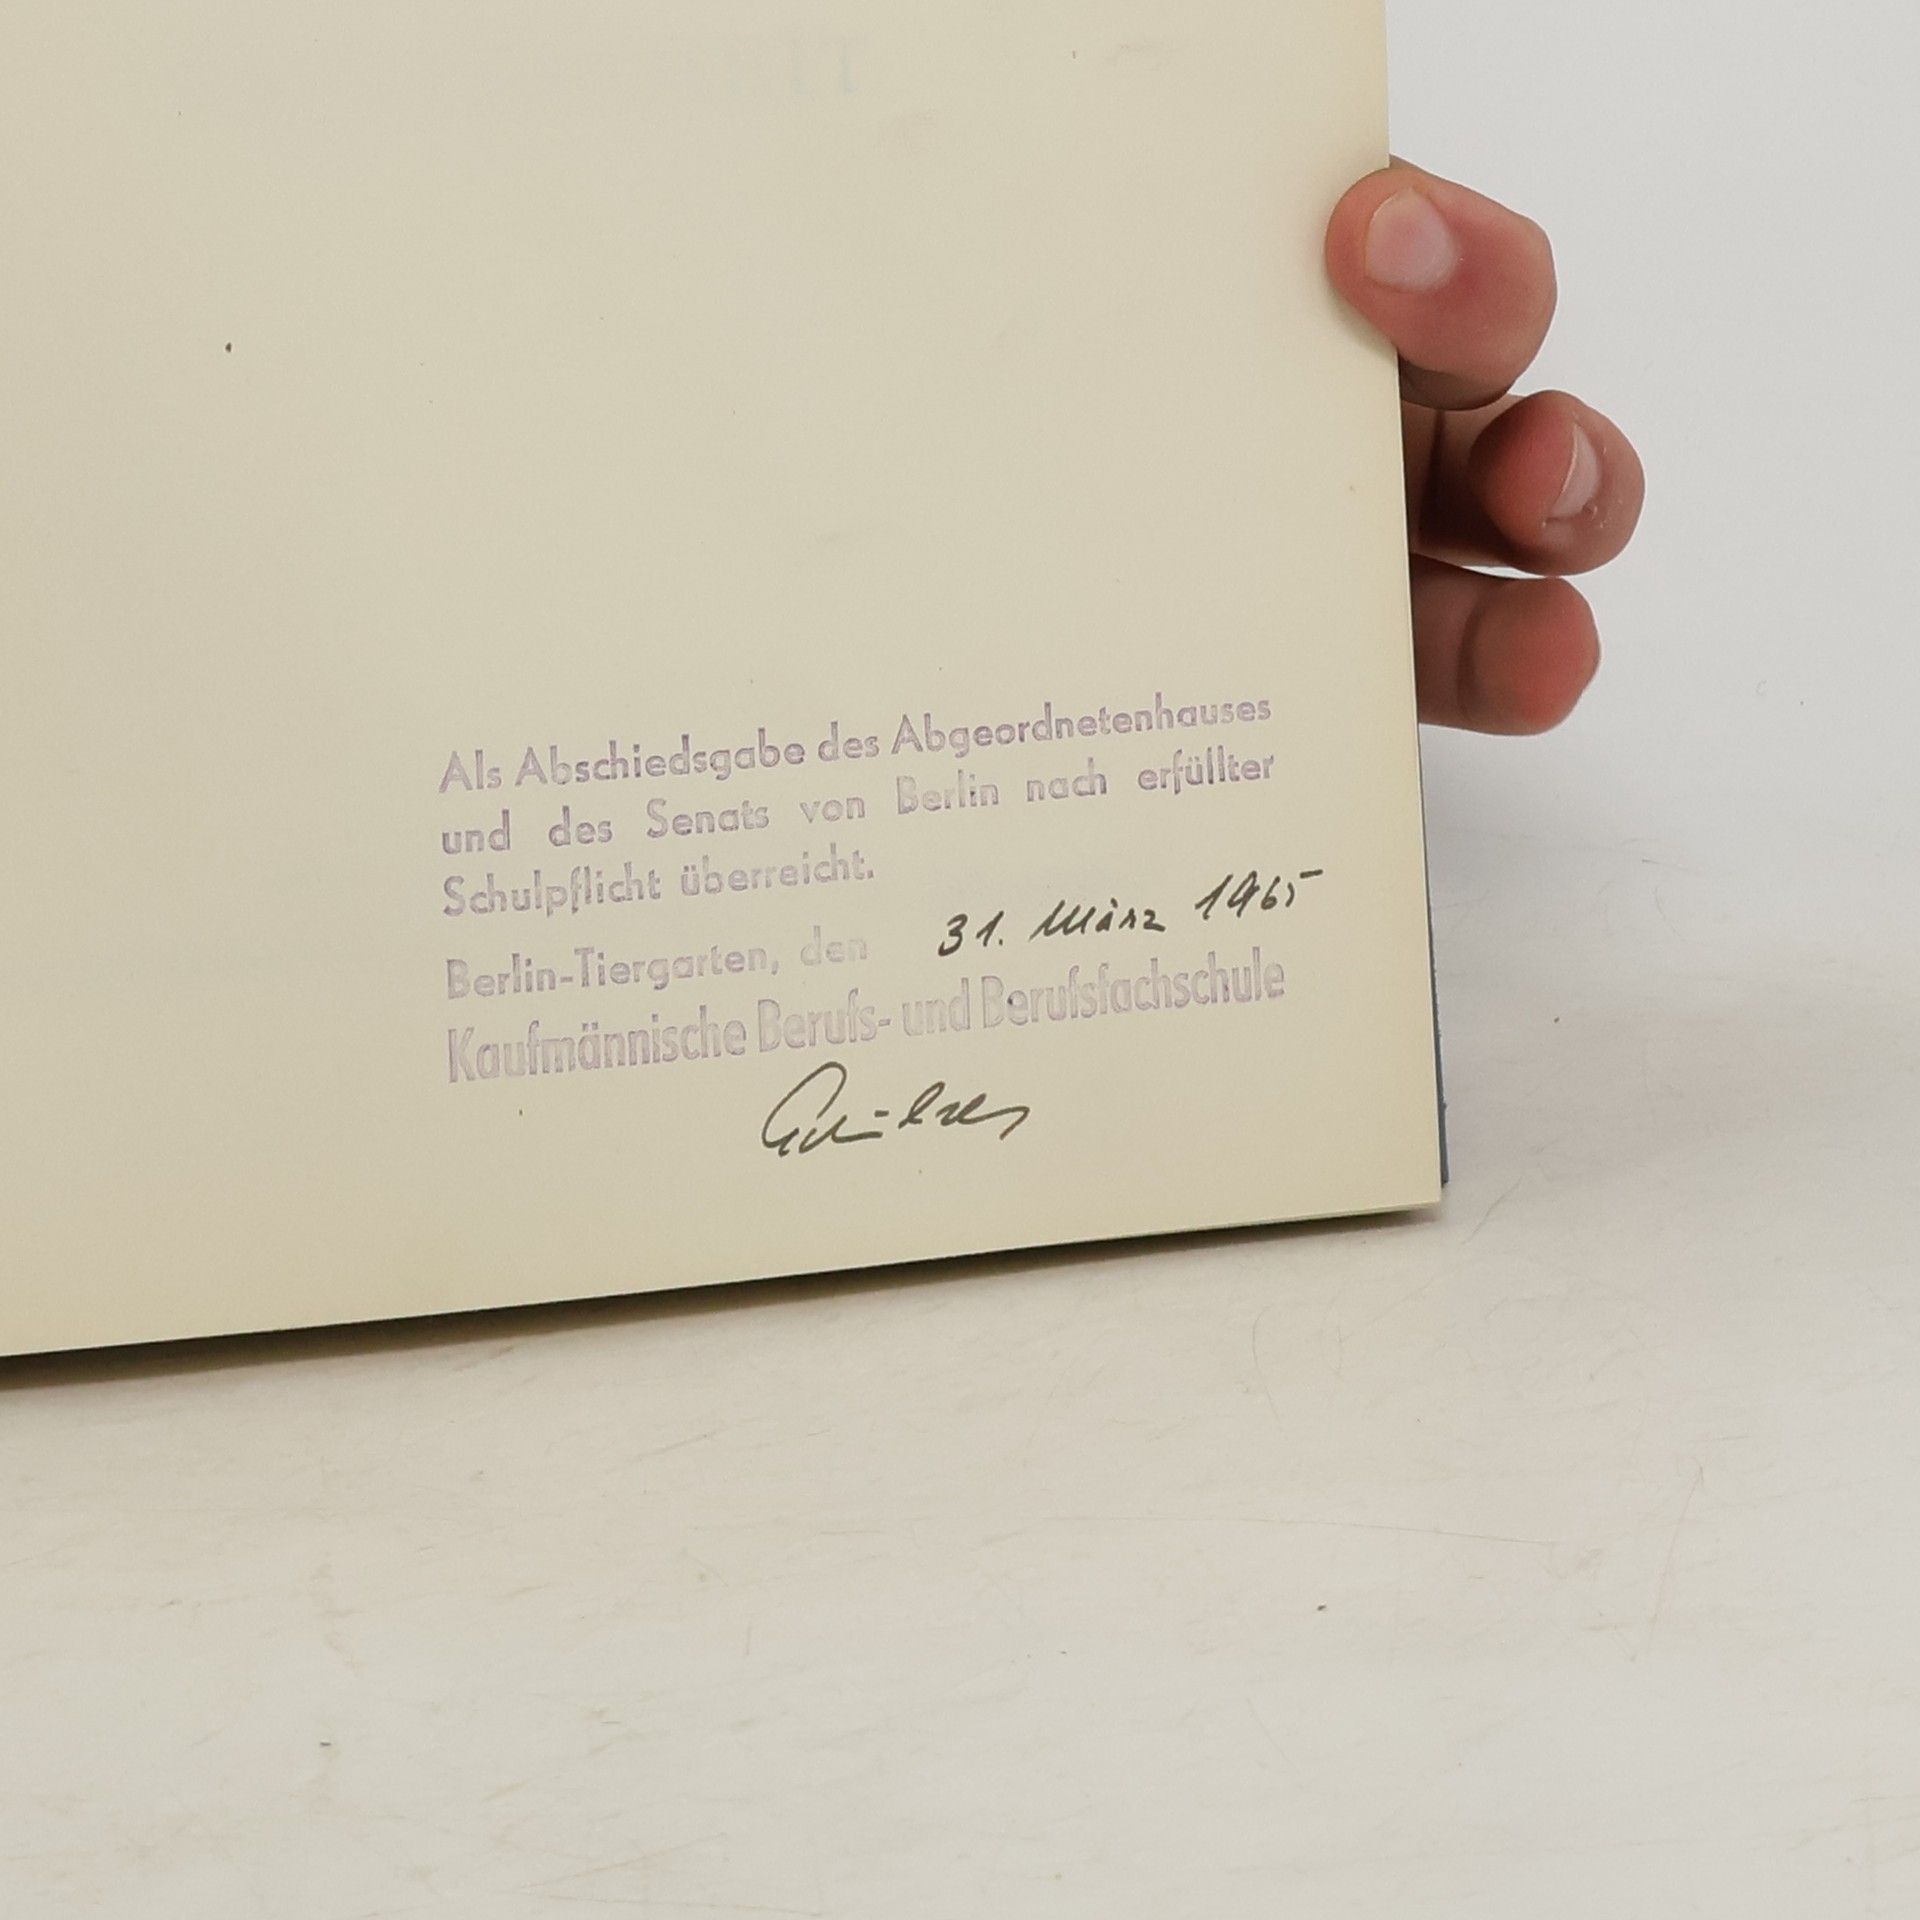 Als Abschiedsgabe des Abgeordnetenhauses
und des Senats von Berlin nach erfüllter
Schulpflicht überreicht.
Berlin-Tiergarten, den 31. März 1965
Kaufmännische Berufs- und Berufsfachschule